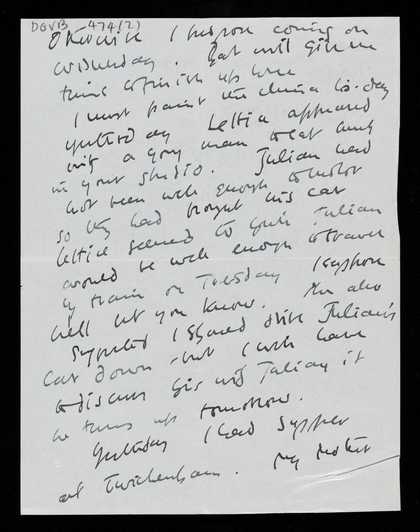 DGVB 474(2)
Otherwise I propose coming on
Wednesday. That will give me
time to finish up here
I must paint the china to-day
yesterday Lettice appeared
with a young man to eat lunch
in your studio. Julian had
not been well enough to motor
so they had brought his car
Lettice seemed to think Julian
would be well enough to travel
by train on Tuesday I suppose
he'll let you know. She also
suggested I should drive Julian's
car down but I will have
to discuss this with Julian if
he turns up tomorrow.
Yesterday I had supper
at Twickenham. My mother